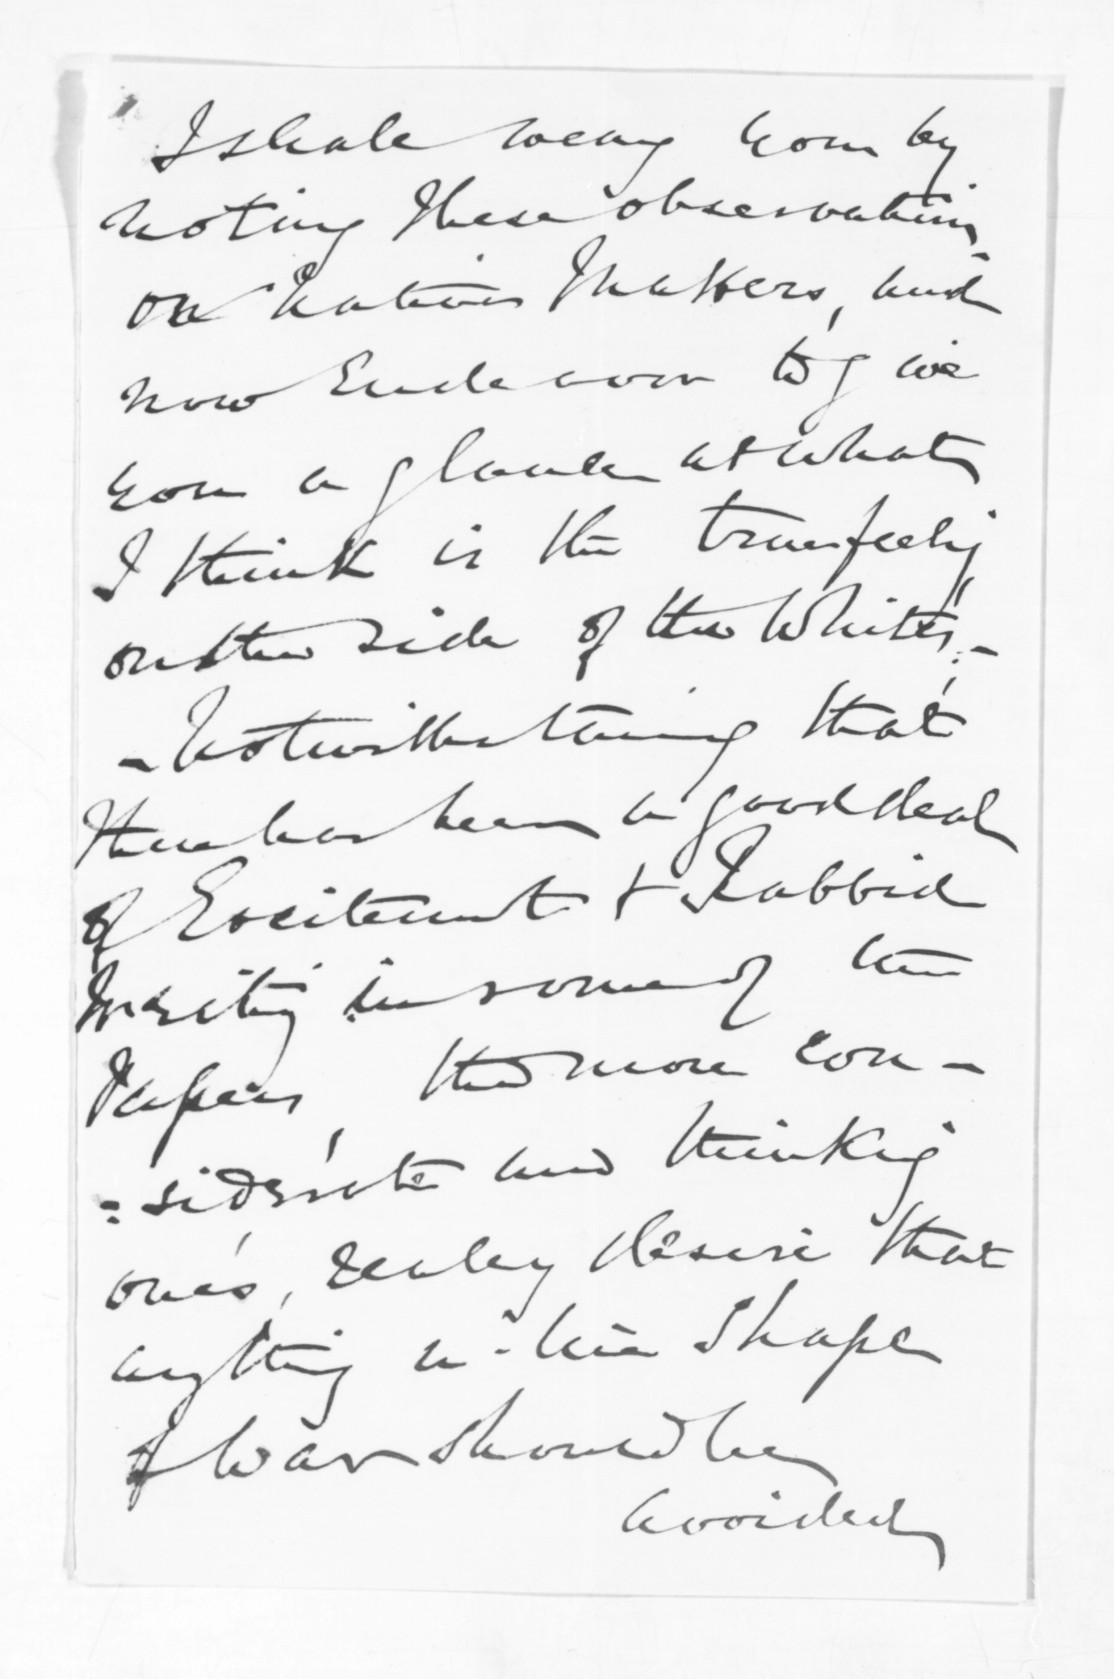 I shale weary you by
noting these observations
on Native Matters, and
now Endeavour to give
you a glance at what
I think is the true feeling
on the side of the Whites,-
- Notwithstanding that
there has been a good deal
of Excitement & Rabbid
Writing in some of the
Papers, the more con-
-siderate and thinking
one's, realey desire that
anything in the Shape
of War should be
avoided